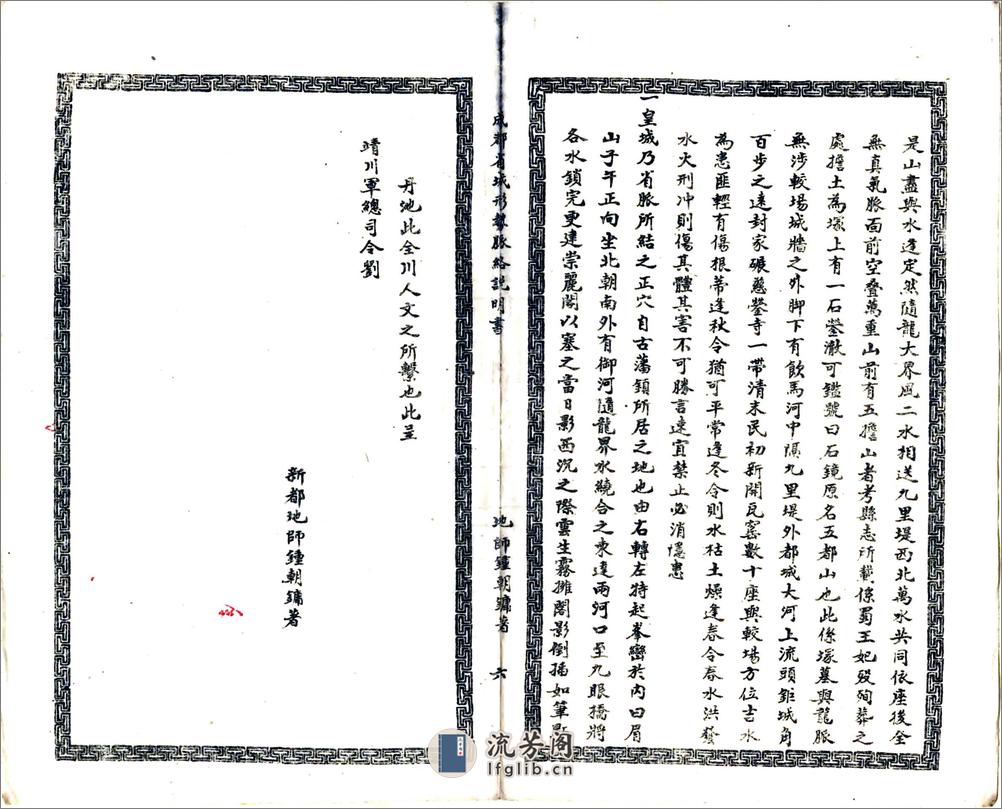 是山盡與水逢定然隨龍大界風二水相送九里堤西北萬水共同依座後全
無真氣脈面前空叠萬重山前有五擔山者考縣志所載係蜀王妃殁殉葬之
處擔土為塚上有一石瑩澈可鑑號曰石鏡原名五都山也此係塚墓與龍脈
無涉較場城牆之外脚下有飲馬河中隔九里堤外都城大河上流頭距城角
百步之遠封家碾慈瑩寺一帶清末民初新開瓦窰數十座與較場方位吉水
為患匪輕有傷根蒂逢秋令猶可平常逢冬令則水枯土燥逢春令春水洪發
水火刑冲則傷其體其害不可勝言速宜禁止必消隱患
一皇城乃省脈所結之正穴自古藩鎮所居之地也由右轉左特起峯巒於內曰眉
山子午正向坐北朝南外有御河隨龍界水繞合之東達兩河口至九眼橋將
各水鎖完更建崇麗閣以塞之當日影西沉之際雲生霧擁閣影倒插如筆點
成都省城形勢脈絡說明書
地師鍾朝鏞著
六
丹池此全川人文之所繫也此呈
靖川軍總司令劉
新都地師鍾朝鏞著
流芳阁
lfglib.cn